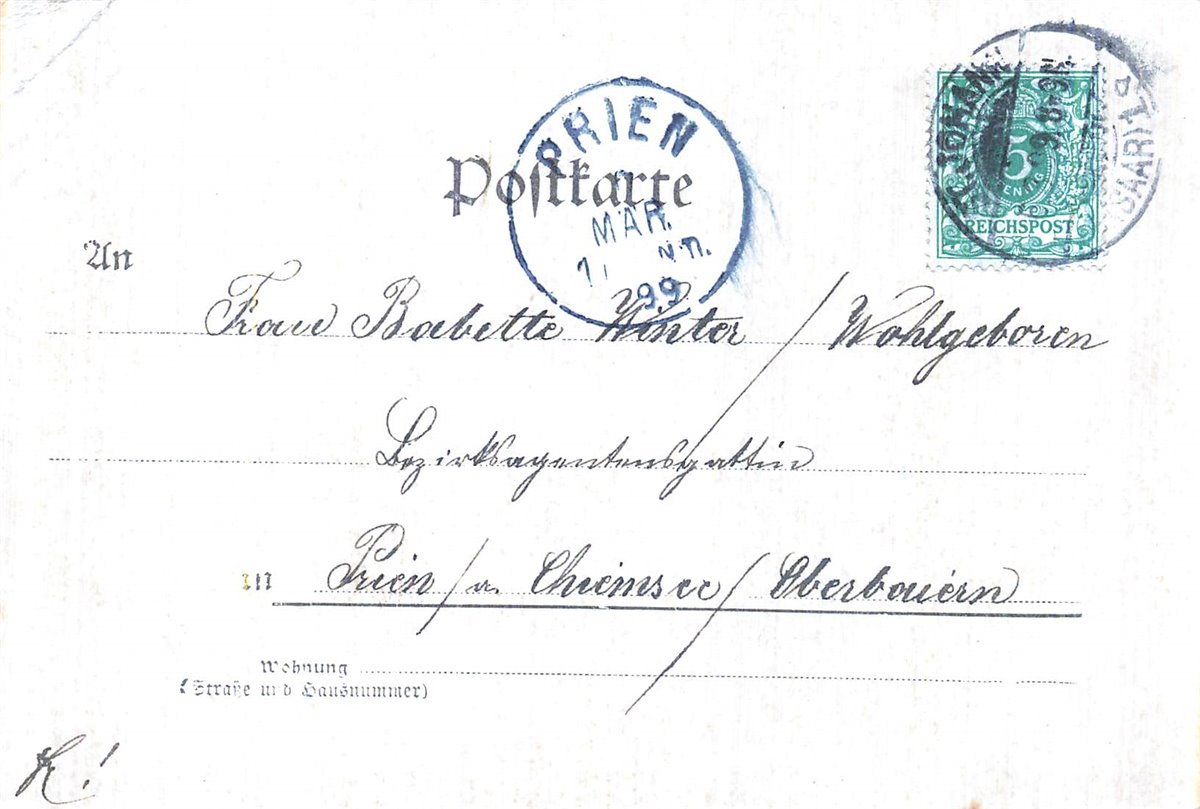 PRIEN
MÄR.
99
ST. JOHANN
(SAAR) 1 a
5
PFENNIG
REICHSPOST
Poſtkarte
An
Frau Babette Winter / Wohlgeboren
Bezirksagentensgattin
in Prien / a. Chiemsee / Oberbaiern
Wohnung
(Straße und Hausnummer)